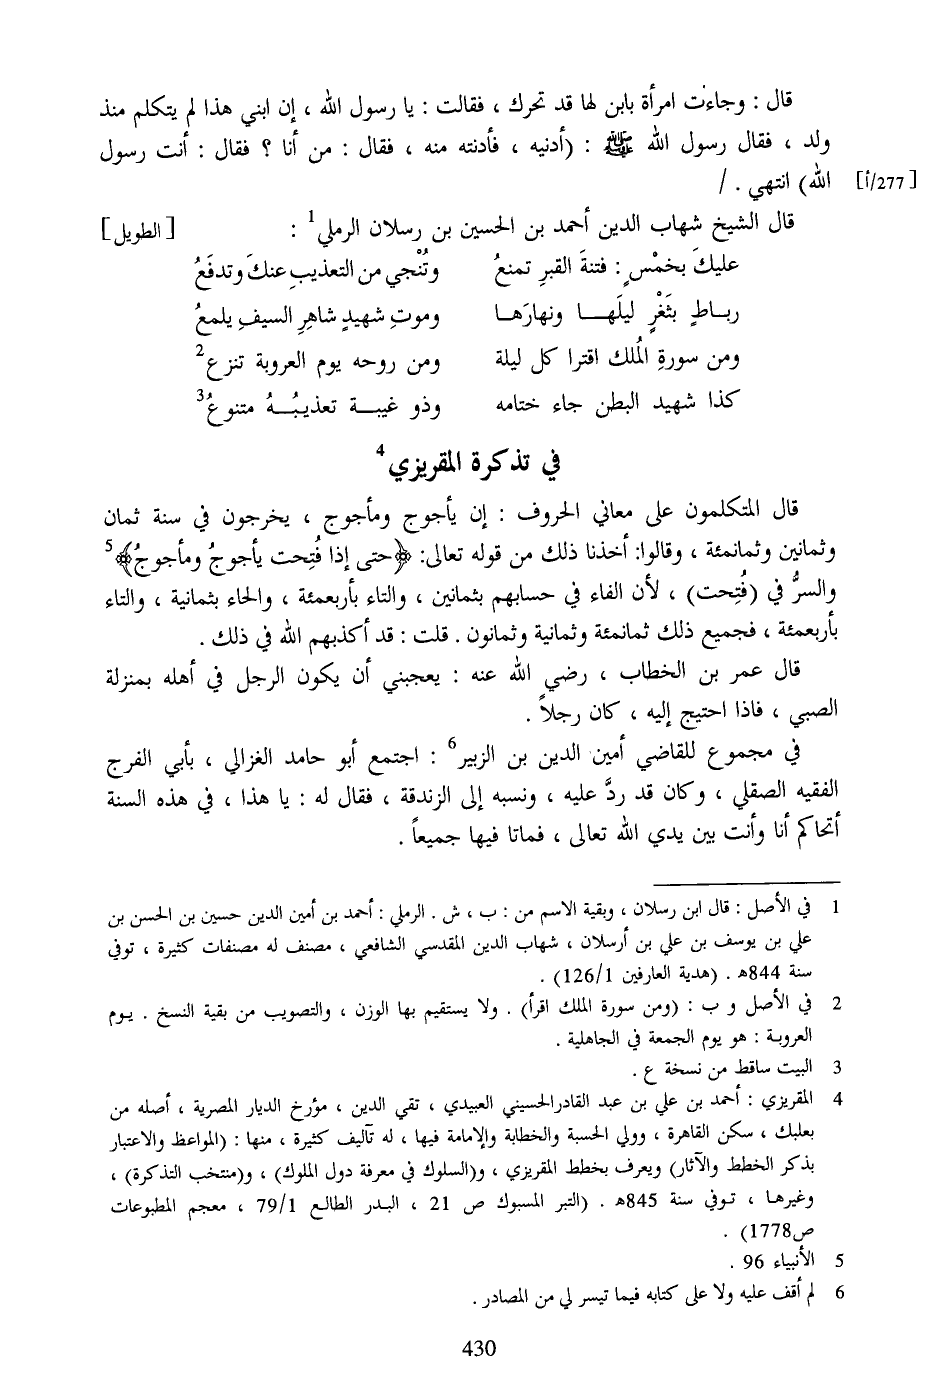 قال : وجاءت امرأة بابن لها قد تحرك ، فقالت : يا رسول الله ، إن ابني هذا لم يتكلم منذ
ولد ، فقال رسول الله ﷺ : (أدنيه ، فأدنته منه ، فقال : من أنا ؟ فقال : أنت رسول
[277/أ] الله) انتهي . /
قال الشيخ شهاب الدين أحمد بن الحسين بن رسلان الرملي1 : [الطويل]
عليكَ بخمْسٍ : فتنةَ القبرِ تمنعُ وتُنْجي من التعذيبِ عنكَ وتدفَعُ
ربـاطٍ بثَغْرٍ ليلَهـــا ونهارَهـا وموتِ شهيدٍ شاهِرِ السيفِ يلمعُ
ومن سورةِ المُلك اقترا كل ليلة ومن روحه يوم العروبة تنزع2
كذا شهيد البطن جاء ختامه وذو غيبـــة تعذيبُـــهُ متنوعُ3
في تذكرة المقريزي4
قال المتكلمون على معاني الحروف : إن يأجوج ومأجوج ، يخرجون في سنة ثمان
وثمانين وثمانمئة ، وقالوا: أخذنا ذلك من قوله تعالى: ﴿حتى إذا فُتِحت يأجوجُ ومأجوجُ﴾5
والسرُّ في (فُتِحت) ، لأن الفاء في حسابهم بثمانين ، والتاء بأربعمئة ، والحاء بثمانية ، والتاء
بأربعمئة ، فجميع ذلك ثمانمئة وثمانية وثمانون . قلت : قد أكذبهم الله في ذلك .
قال عمر بن الخطاب ، رضي الله عنه : يعجبني أن يكون الرجل في أهله بمنزلة
الصبي ، فاذا احتيج إليه ، كان رجلاً .
في مجموع للقاضي أمين الدين بن الزبير6 : اجتمع أبو حامد الغزالي ، بأبي الفرج
الفقيه الصقلي ، وكان قد ردَّ عليه ، ونسبه إلى الزندقة ، فقال له : يا هذا ، في هذه السنة
أتحاكم أنا وأنت بين يدي الله تعالى ، فماتا فيها جميعاً .
1 في الأصل : قال ابن رسلان ، وبقية الاسم من : ب ، ش . الرملي : أحمد بن أمين الدين حسين بن الحسن بن
علي بن يوسف بن علي بن أرسلان ، شهاب الدين المقدسي الشافعي ، مصنف له مصنفات كثيرة ، توفي
سنة 844هـ . (هدية العارفين 126/1) .
2 في الأصل و ب : (ومن سورة الملك اقرأ) . ولا يستقيم بها الوزن ، والتصويب من بقية النسخ . يـوم
العروبـة : هو يوم الجمعة في الجاهلية .
3 البيت ساقط من نسخة ع .
4 المقريزي : أحمد بن علي بن عبد القادرالحسيني العبيدي ، تقي الدين ، مؤرخ الديار المصرية ، أصله من
بعلبك ، سكن القاهرة ، وولي الحسبة والخطابة والإمامة فيها ، له تآليف كثيرة ، منها : (المواعظ والاعتبار
بذكر الخطط والآثار) ويعرف بخطط المقريزي ، و(السلوك في معرفة دول الملوك) ، و(منتخب التذكرة) ،
وغيرهـا ، تـوفي سنة 845هـ . (التبر المسبوك ص 21 ، البـدر الطالـع 79/1 ، معجم المطبوعات
ص1778) .
5 الأنبياء 96 .
6 لم أقف عليه ولا على كتابه فيما تيسر لي من المصادر .
430